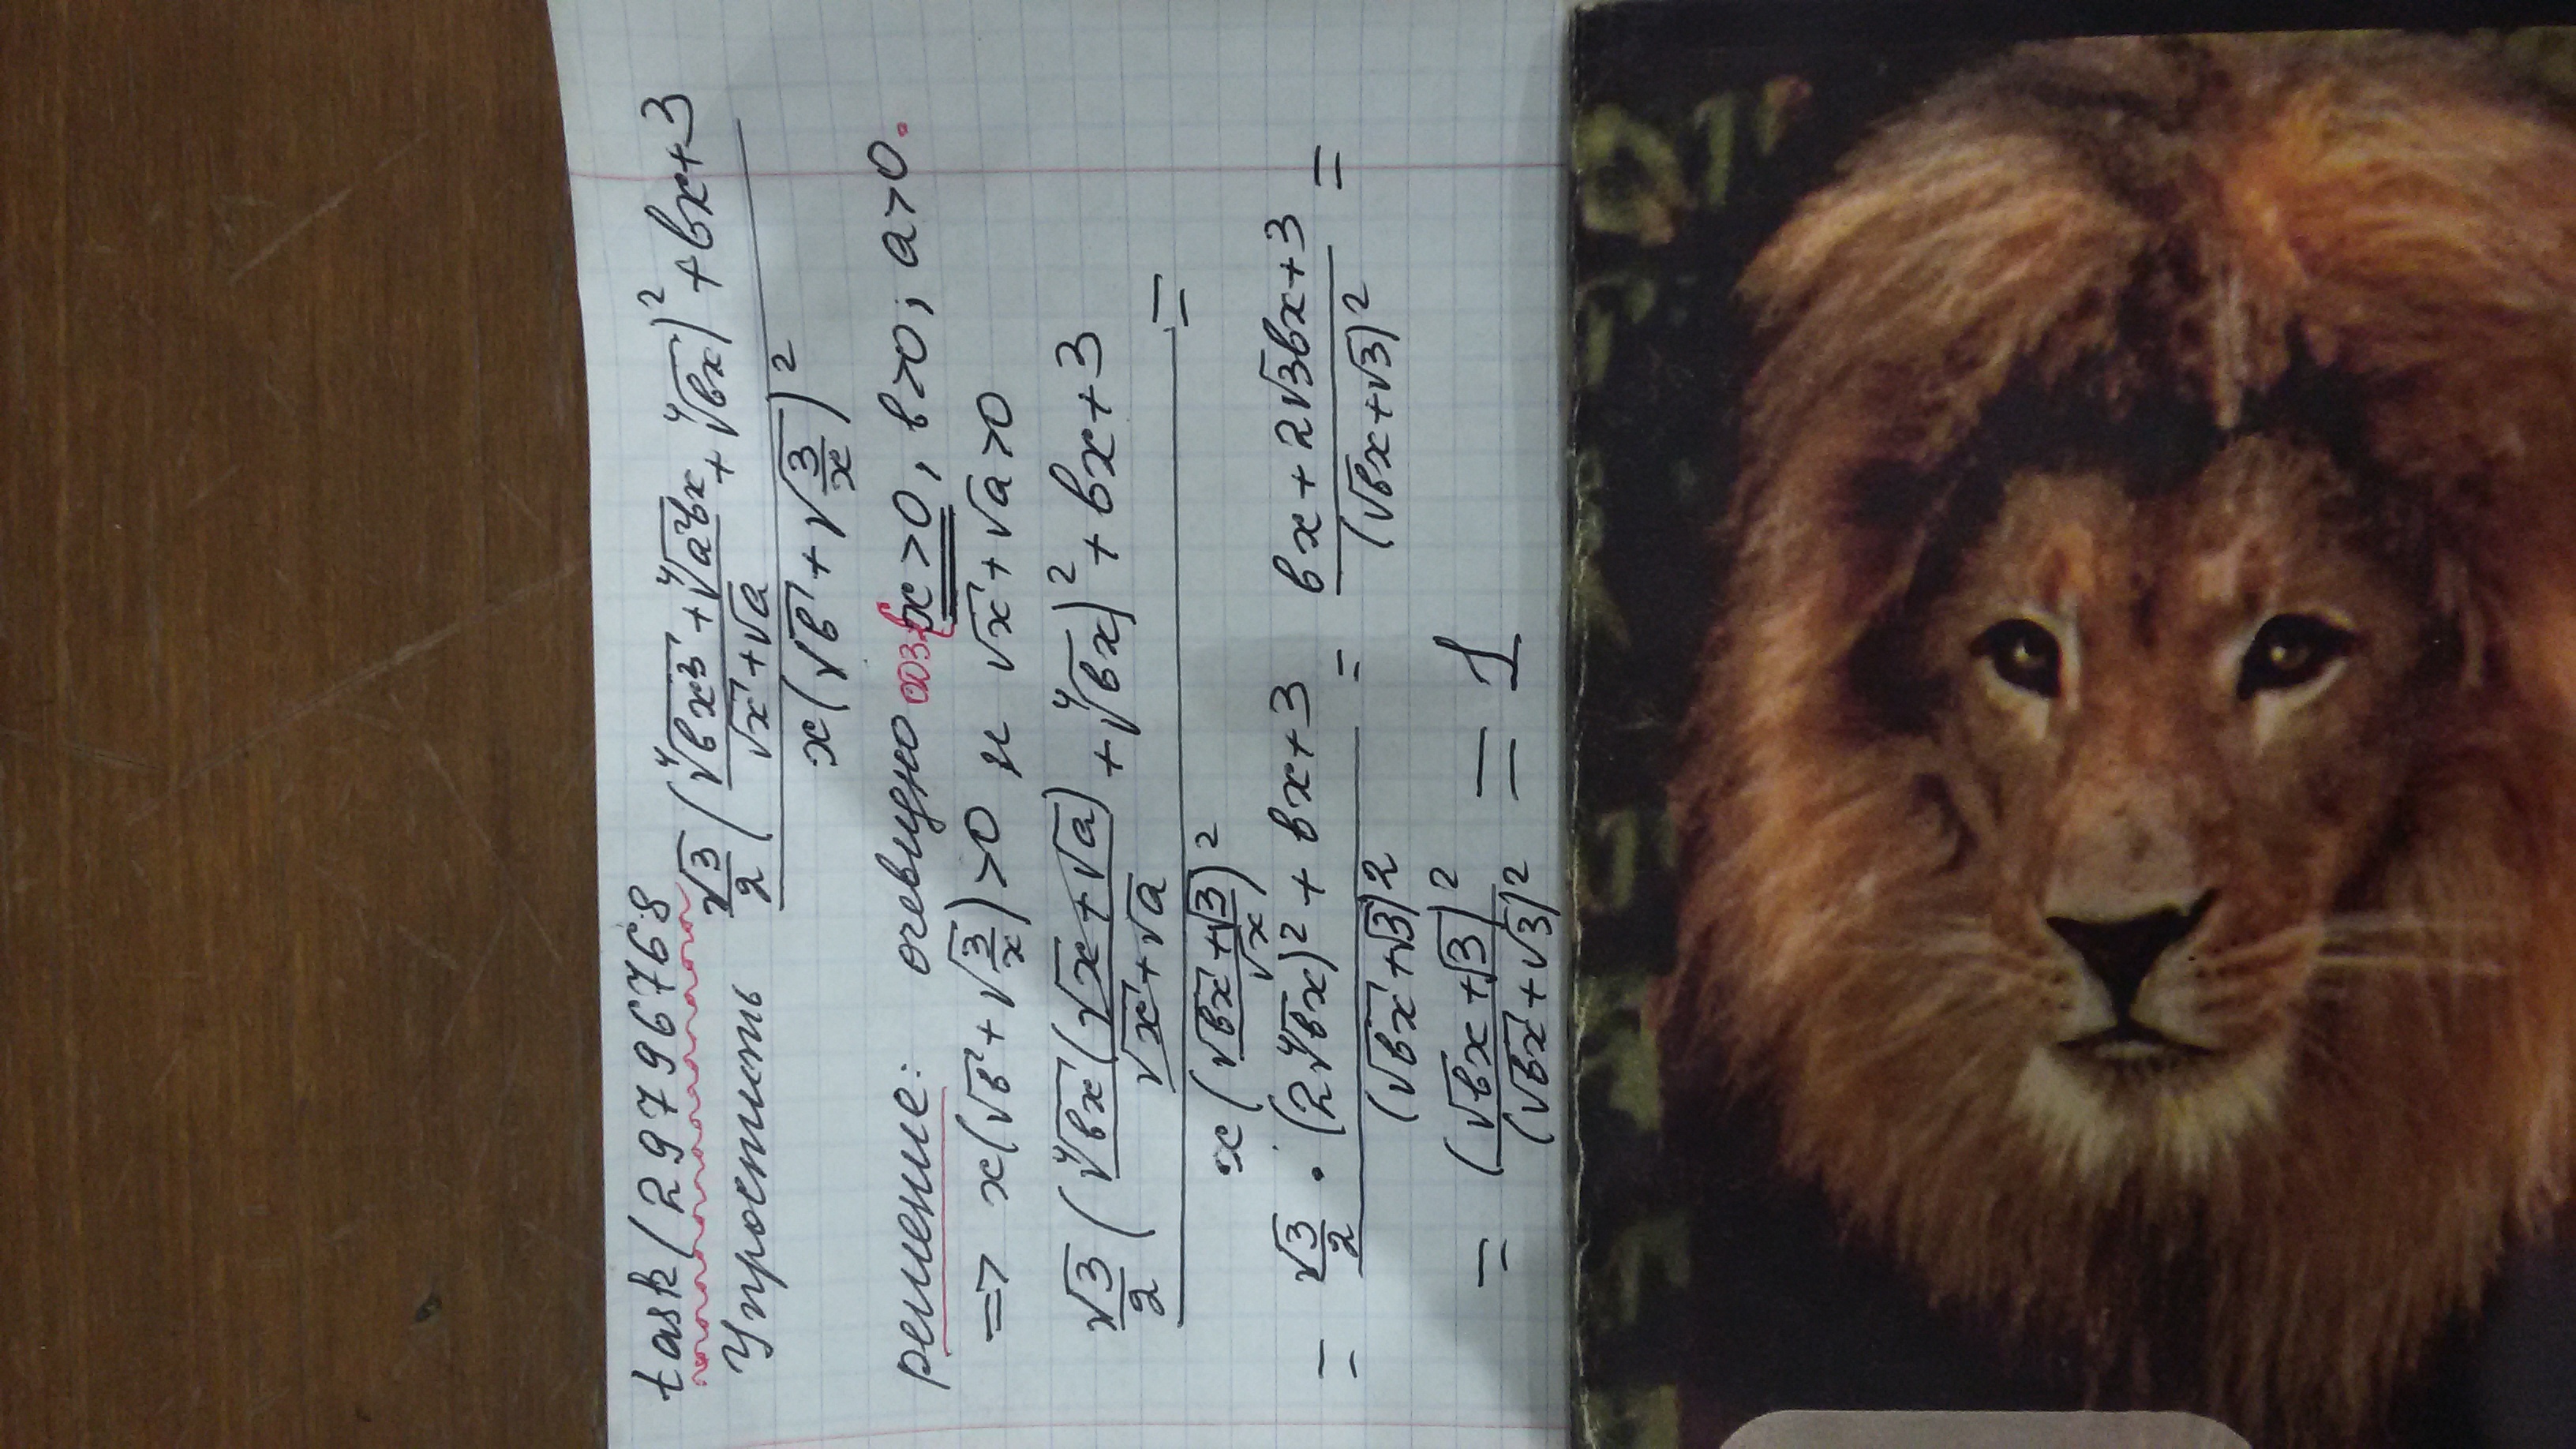 task(29796768
Упростить √3/2 (⁴√(вx³) + ⁴√(a²вx) / √x + √a + ⁴√(вx))² + вx + 3
x(√в + √(3/x))²
решение: очевидно ОДЗ { x > 0, в > 0; a > 0.
=> x(√в + √(3/x)) > 0 и √x + √a > 0
√3/2 (⁴√(вx)(√x + √a) / √x + √a + ⁴√(вx))² + вx + 3 =
x(√(вx) + √3 / √x)²
= √3/2 · (2⁴√(вx))² + вx + 3 / (√(вx) + √3)² = вx + 2√3вx + 3 / (√вx + √3)² =
= (√вx + √3)² / (√вx + √3)² = 1